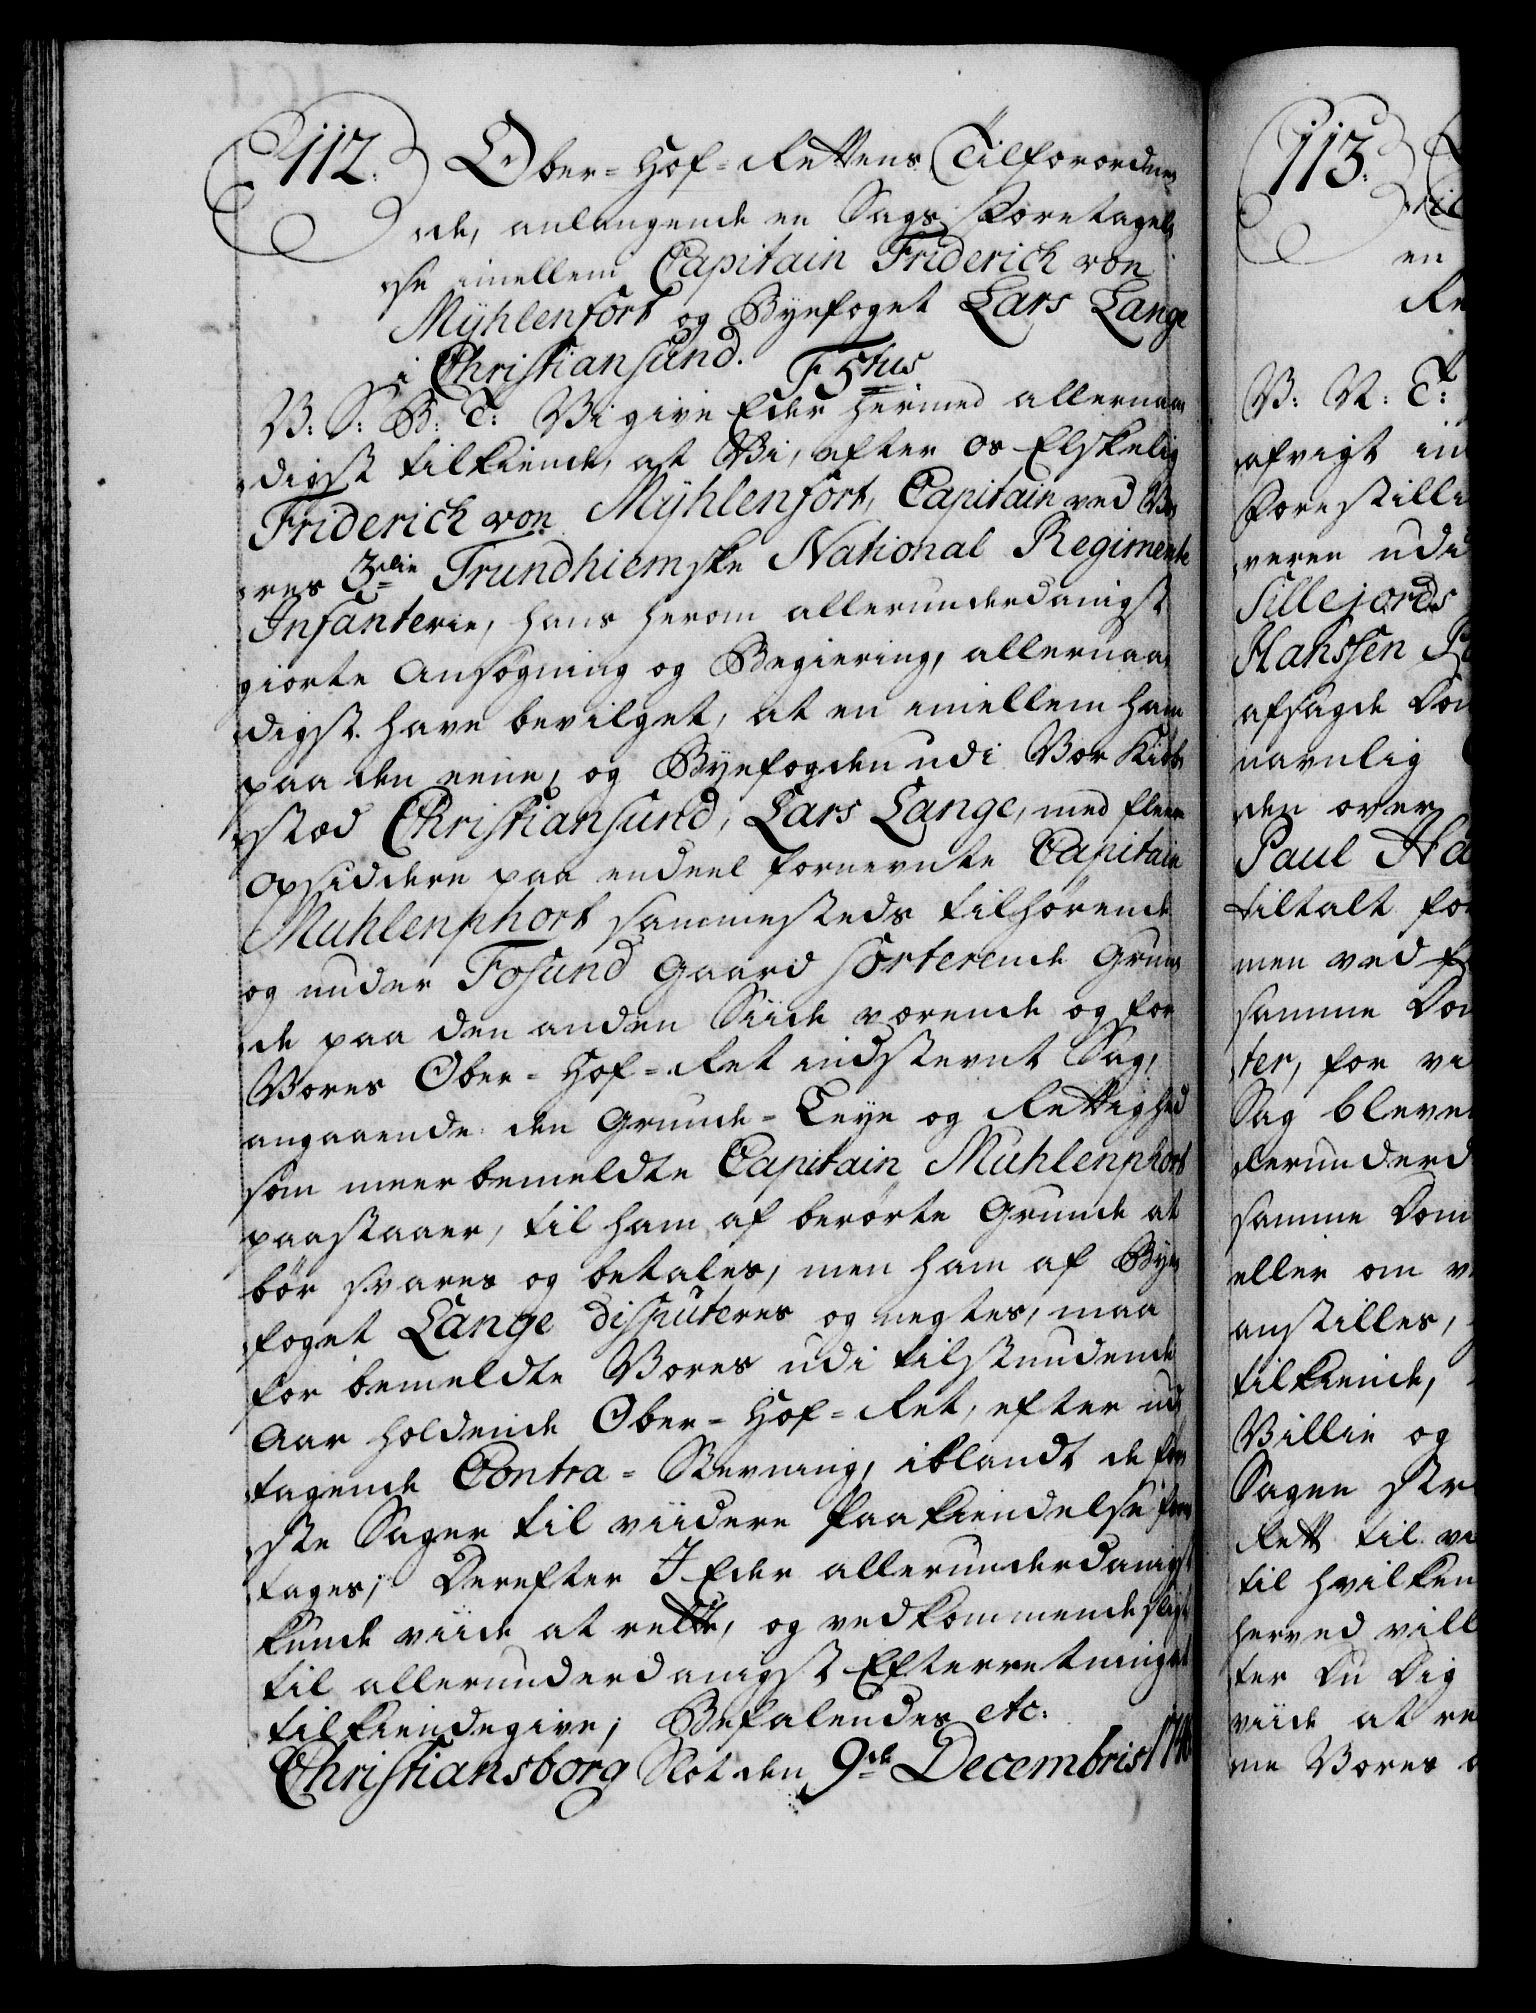 112. Ober-Hof-Rettens Tilforordne
de, anlangende en Sags Foretagel
se imellem Capitain Friderich von
Mÿhlenfort og Byefoget Lars Lange
i Christiansund. F 5tus
V: S: G: T: Vi give Eder hermed allernaa
digst tilkiende, at Vi, efter os Elskelig
Friderich von Mÿhlenfort, Capitain ved Vo
res 3die Trundhiemske National Regimente
Infanterie, hans herom allerunderdanigst
giorte Ansøgning og Begiering, allernaa
digst have bevilget, at en imellem ham
paa den eene, og Byefogden udi Vor Kiøb
stæd Christiansund, Lars Lange, med fleere
Opsiddere paa endeel fornevnte Capitain
Muhlenphort sammesteds tilhørende
og under Fosund Gaard sorterende Grun
de paa den anden Siide værende og for
Vores Ober-Hof-Ret indstevnt Sag,
angaaende den Grunde-Leye og Rettighed
som meerbemeldte Capitain Muhlenphort
paastaaer, til ham af berørte Grunde at
bør svares og betales, men ham af Bye
foget Lange disputeres og negtes, maa
for bemeldte Vores udi tilstundende
Aar holdende Ober-Hof-Ret, efter ud
tagende Contra-Stevning, iblandt de før
ste Sager til viidere Paakiendelse for
tages; Derefter I Eder allerunderdanigst
kunde viide at rette, og vedkommende sligt
til allerunderdanigst Efterretning at
tilkiendegive; Befalendes etc:
Christiansborg Slot den 9de Decembris
113.
en
V: V: T:
afvigt in
Forestilli
veren udi
Sillejords
Hanssen
afsagde Dom
navnlig
den over
Paul Ha
tiltalt for
men ved
samme Dom
ter, for
Sag bleve
lerunderd
samme Dom
eller om
anstilles,
tilkiende,
Villie og
Sagen
Rett til
til hvilken
herved vill
ter Du Dig
viide at re
me Vores